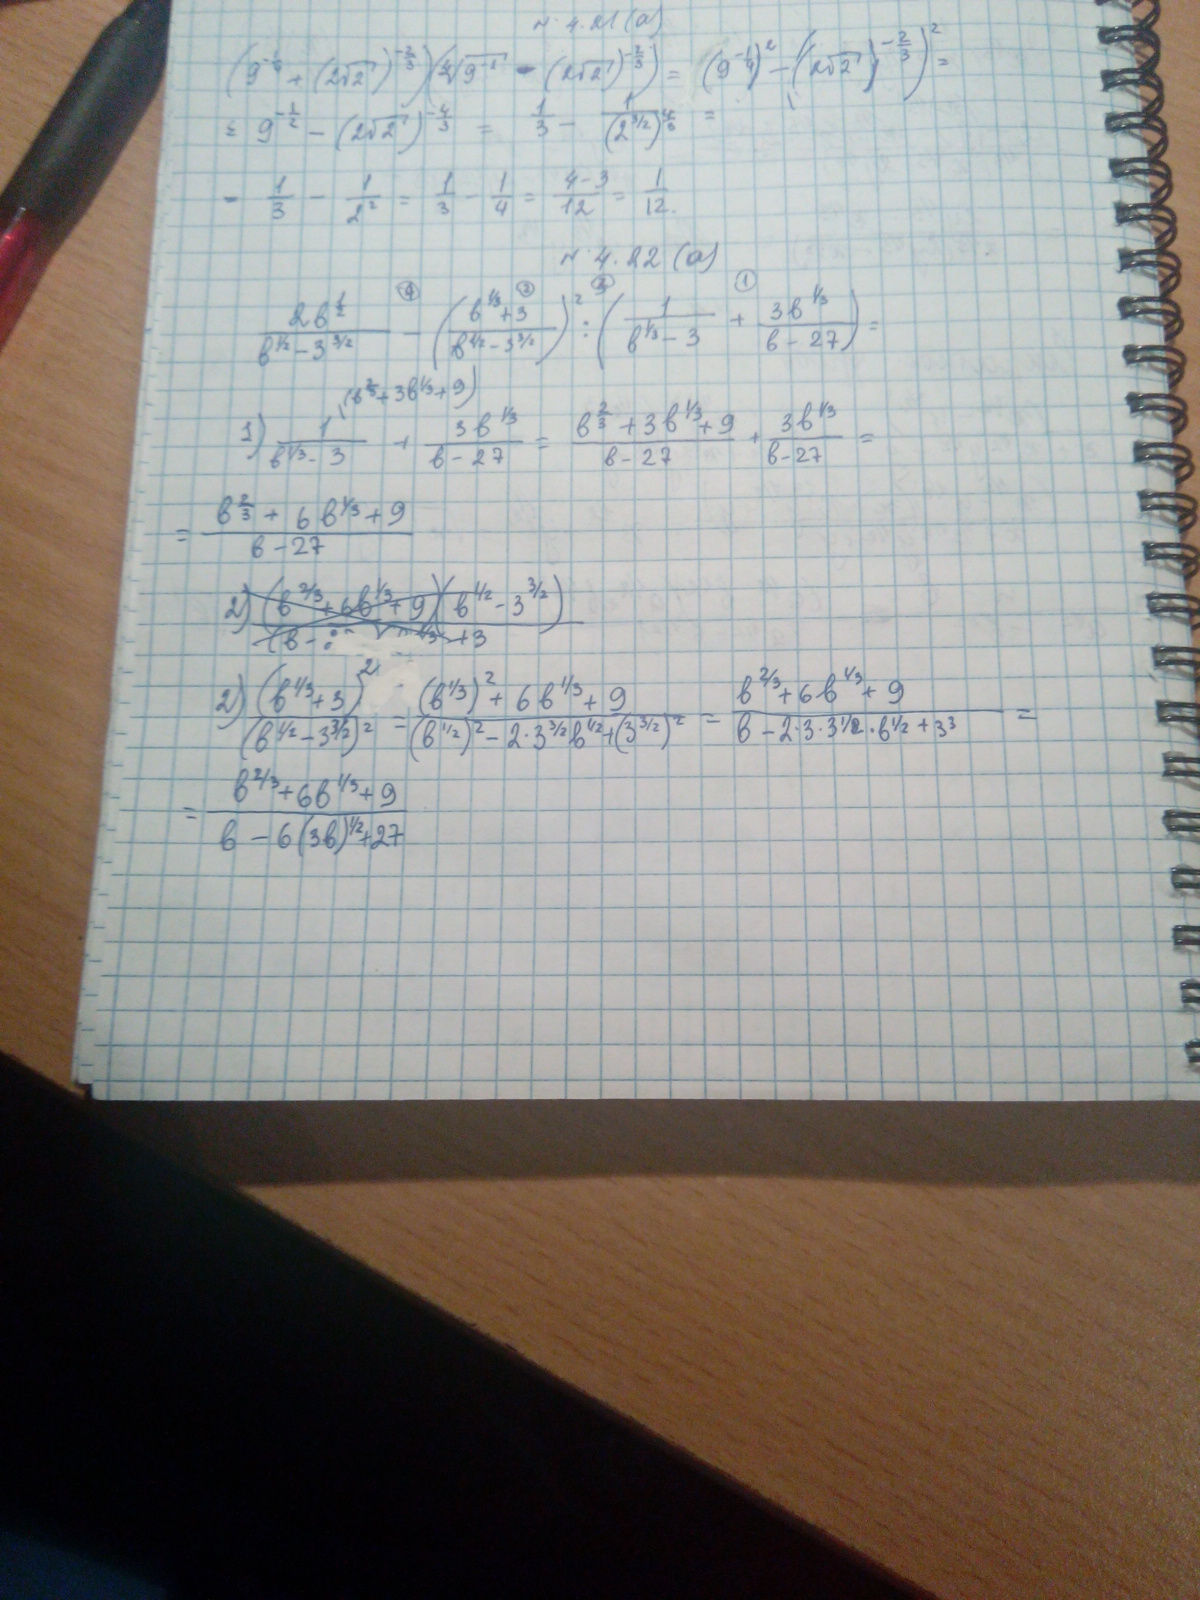 № 4.21 (а)
(9^{-1/4} + (2√2)^{-2/3})(∜9^{-1} - (2√2)^{-2/3}) = (9^{-1/4})^2 - ((2√2)^{-2/3})^2 =
= 9^{-1/2} - (2√2)^{-4/3} = 1/3 - 1/(2^{3/2})^{4/3} =
- 1/3 - 1/2^2 = 1/3 - 1/4 = (4-3)/12 = 1/12.
№ 4.22 (а)
④ ③ ② ①
2b^{1/2}/(b^{1/2} - 3^{3/2}) - ((b^{1/3} + 3)/(b^{1/2} - 3^{3/2}))^2 : (1/(b^{1/3} - 3) + 3b^{1/3}/(b - 27)) =
(b^{2/3} + 3b^{1/3} + 9)
1) 1/(b^{1/3} - 3) + 3b^{1/3}/(b - 27) = (b^{2/3} + 3b^{1/3} + 9)/(b - 27) + 3b^{1/3}/(b - 27) =
= (b^{2/3} + 6b^{1/3} + 9)/(b - 27)
2) (b^{2/3} + 6b^{1/3} + 9)(b^{1/2} - 3^{3/2})
2) (b^{1/3} + 3)^2/(b^{1/2} - 3^{3/2})^2 = ((b^{1/3})^2 + 6b^{1/3} + 9)/((b^{1/2})^2 - 2·3^{3/2}b^{1/2} + (3^{3/2})^2) = (b^{2/3} + 6b^{1/3} + 9)/(b - 2·3·3^{1/2}·b^{1/2} + 3^3) =
= (b^{2/3} + 6b^{1/3} + 9)/(b - 6(3b)^{1/2} + 27)